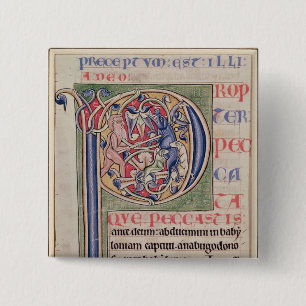 PRECEPTVM : EST : ILLI :
A DEO :
P ROP
TER
PEC
CA
TA
QVE PECCASTIS
ante deum : abducimini in baby
loniam captiui a nabugodono